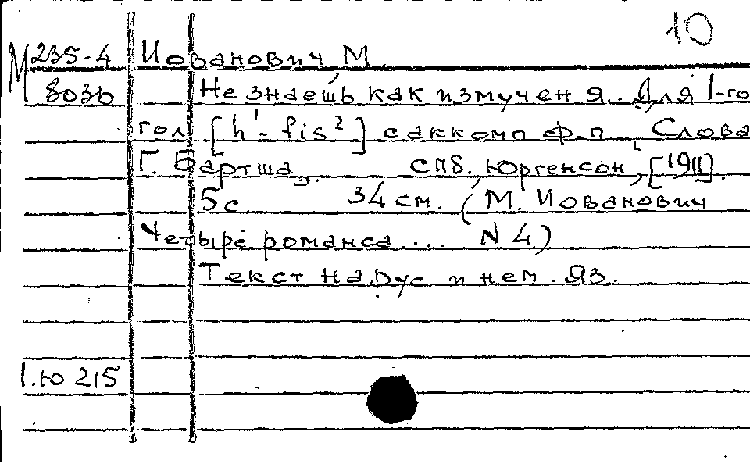 10
М 235-4 Иованович М.
803ь Не знаешь как измучен я. Для 1-го
гол. [h¹-fis²] с аккомп ф.п. Слова
Г. Бартша, СПб. Юргенсон, [1911].
5с 34 см. (М. Иованович
Четыре романса... N 4)
Текст на рус и нем. яз.
1.Ю 215